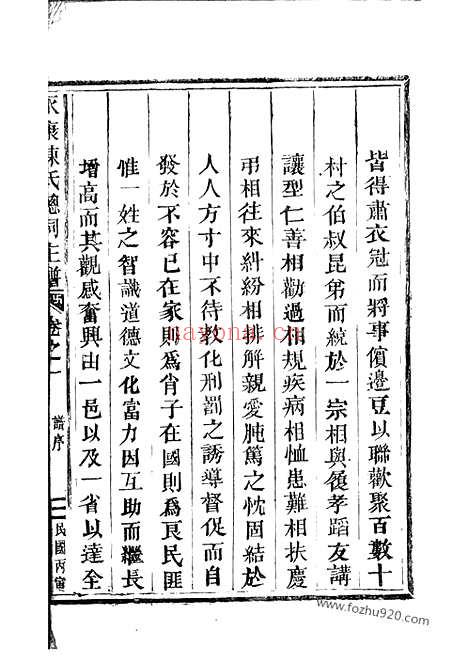 皆得肅衣冠而將事儐邊豆以聯歡聚百數十
村之伯叔昆弟而統於一宗相與履孝蹈友講
讓型仁善相勸過相規疾病相恤患難相扶慶
弔相往來糾紛相排解親愛肫篤之忱固結於
人人方寸中不待教化刑罰之誘導督促而自
發於不容已在家則爲肖子在國則爲良民匪
惟一姓之智識道德文化富力因互助而繼長
增高而其觀感奮興由一邑以及一省以達全
永康陳氏總祠主譜 卷之一 譜序 民國丙寅
nayona.cn
www.fozhu920.com